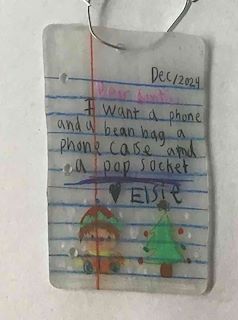 Dec/2024
Dear Santa
I want a phone
and a bean bag a
phone case and
a pop socket
♥ Elsie